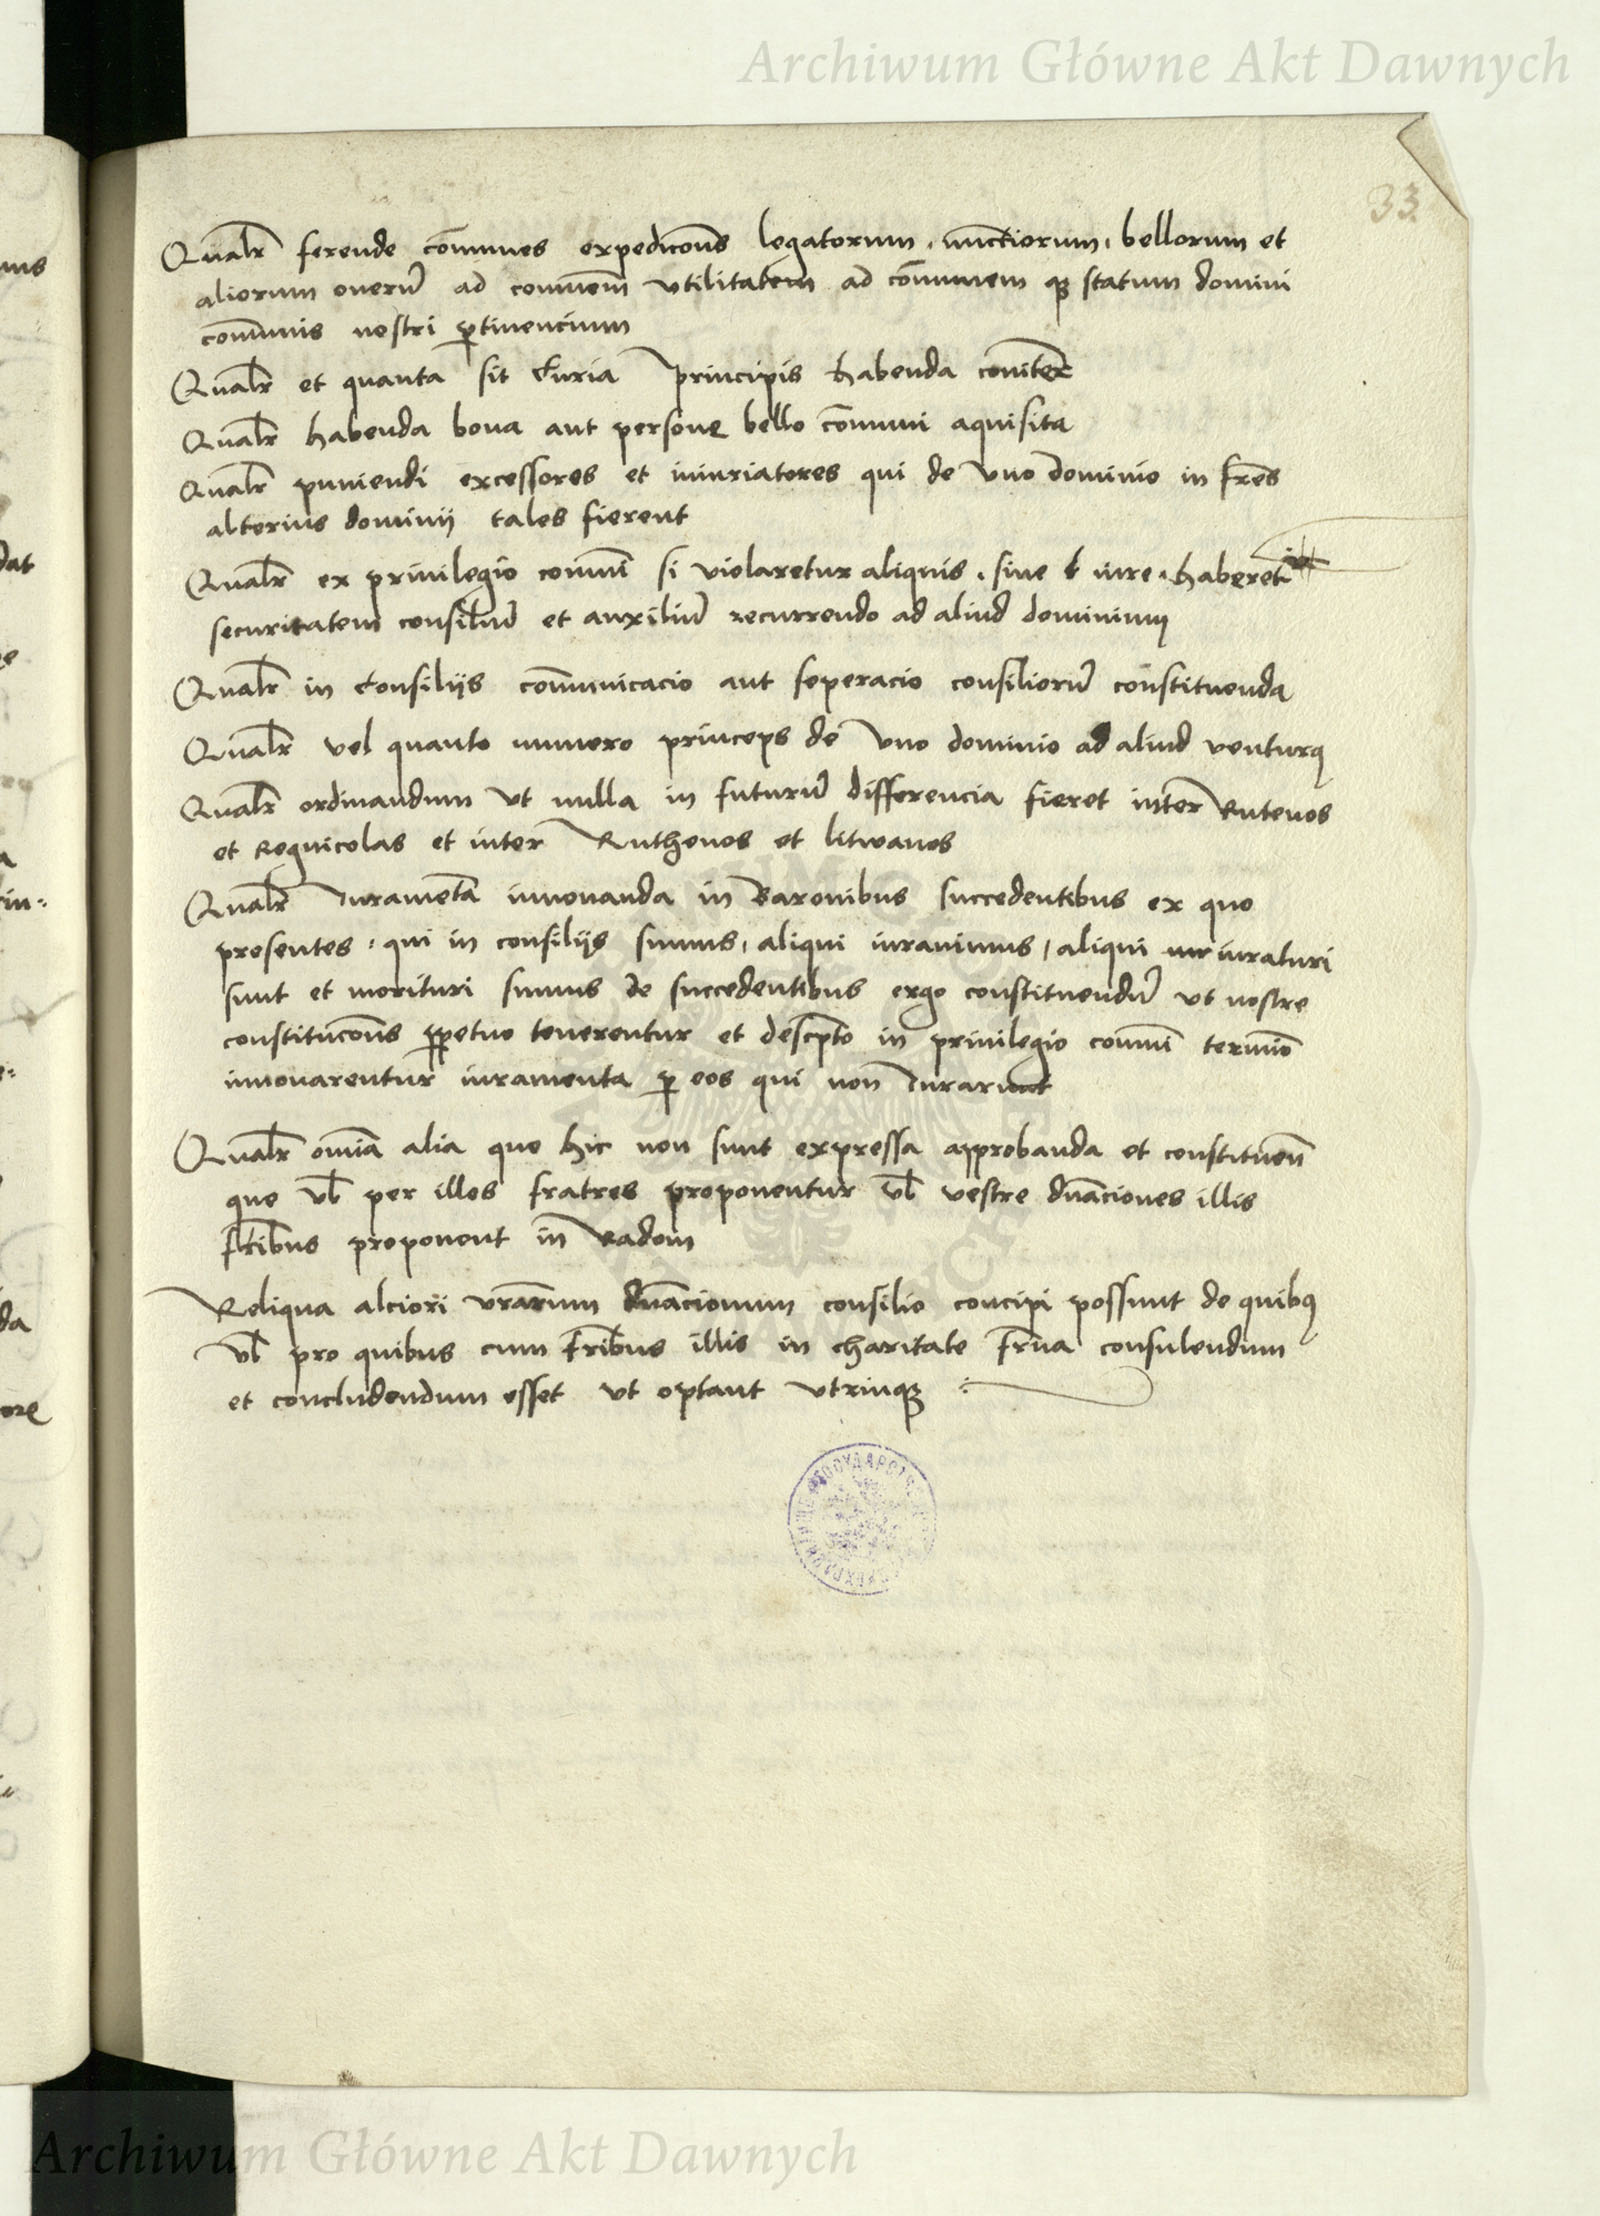 Archiwum Główne Akt Dawnych
33
Qualr̄ ferende cōmunes expedicōns legatorum, nuncciorum, bellorum et
aliorum onerū ad comunem̄ vtilitatem ad cōmunem qʒ statum domini
cōmunis nostri ꝑtinencium
Qualr̄ et quanta sit Curia principis habenda cōniter
Qualr̄ habenda bona aut persone bello cōmuni aquisita
Qualr̄ puniendi excessores et iniuriatores qui de vno dominio in frēs
alterius dominij tales fierent
Qualr̄ ex priuilegio comuni si violaretur aliquis, siue iure, haberet
securitatem consiliū et auxiliū recurrendo ad aliud dominium
Qualr̄ in Consilijs cōmunicacio aut seperacio consiliorū constituenda
Qualr̄ vel quanto numero princeps de vno dominio ad aliud venturꝰ
Qualr̄ ordinandum vt nulla in futurū differencia fieret inter Rutenos
et Regnicolas et inter Ruthenos et litwanos
Qualr̄ Iuramēta innouanda in Baronibus succedentibus ex quo
presentes, qui in consilijs sumus, aliqui iurauimus, aliqui iuraturi
sunt et morituri sumus de succedentibus ergo constituendū vt nostre
constitucōns ꝑpetuo tenerentur et descpto in priuilegio comuni termīo
innouarentur iuramenta ꝑ eos qui non Iurarunt
Qualr̄ omīa alia que hic non sunt expressa approbanda et constituen̄
que vl̄ per illos fratres proponentur vl̄ vestre dnāciones illis
frībus proponent in Radom
Reliqua alciori vrārum dnācionum consilio concipi possunt de quibꝰ
vl̄ pro quibus cum frībus illis in charitate frna consulendum
et concludendum esset vt optant vtrinqʒ
Archiwum Główne Akt Dawnych